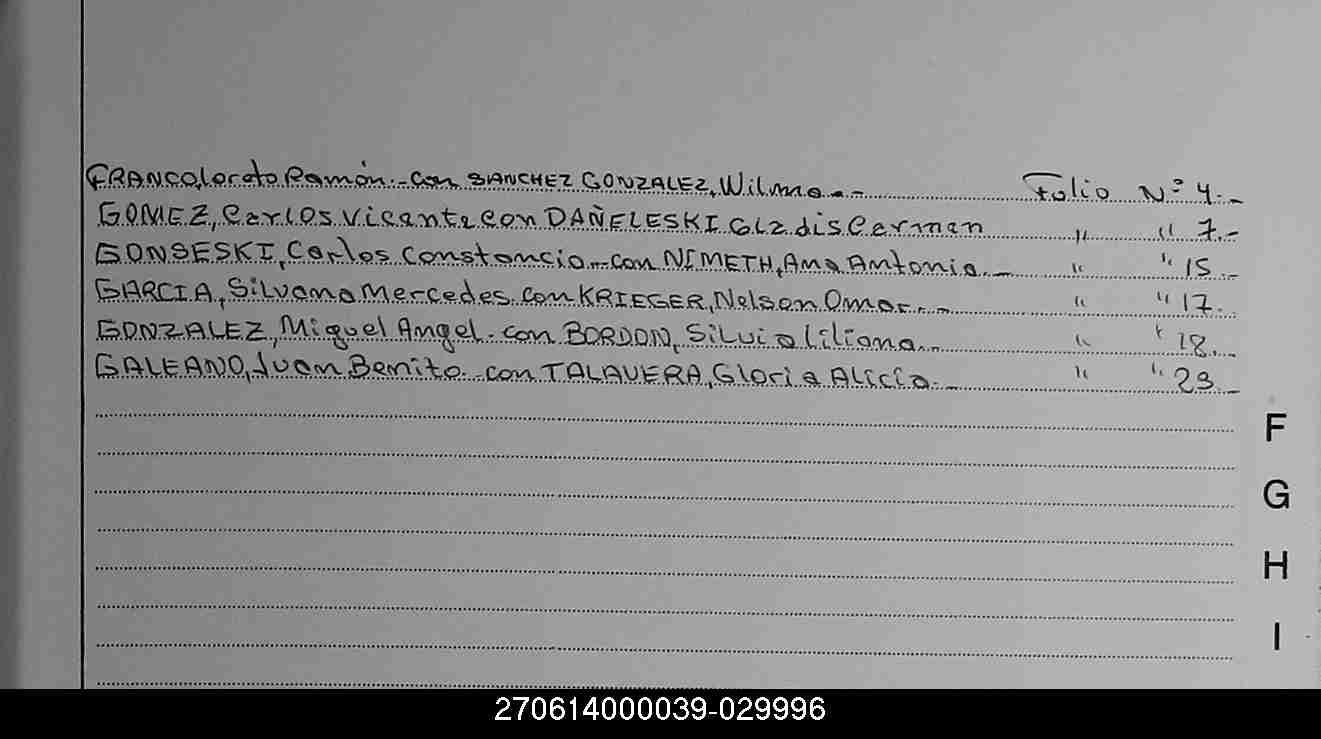 FRANCO, Loreto Ramón.- con SANCHEZ GONZALEZ, Wilma.- Folio Nº 4.-
GOMEZ, Carlos Vicente con DAÑELESKI Gladis Carmen " " 7.-
GONSESKI, Carlos Constancio.- con NIMETH, Ana Antonia.- " " 15.-
GARCIA, Silvana Mercedes. con KRIEGER, Nelson Omar.- " " 17.-
GONZALEZ, Miguel Angel. con BORDON, Silvia Liliana.- " " 18.-
GALEANO, Juan Benito. con TALAVERA, Gloria Alicia.- " " 23.-
F
G
H
I
270614000039-029996